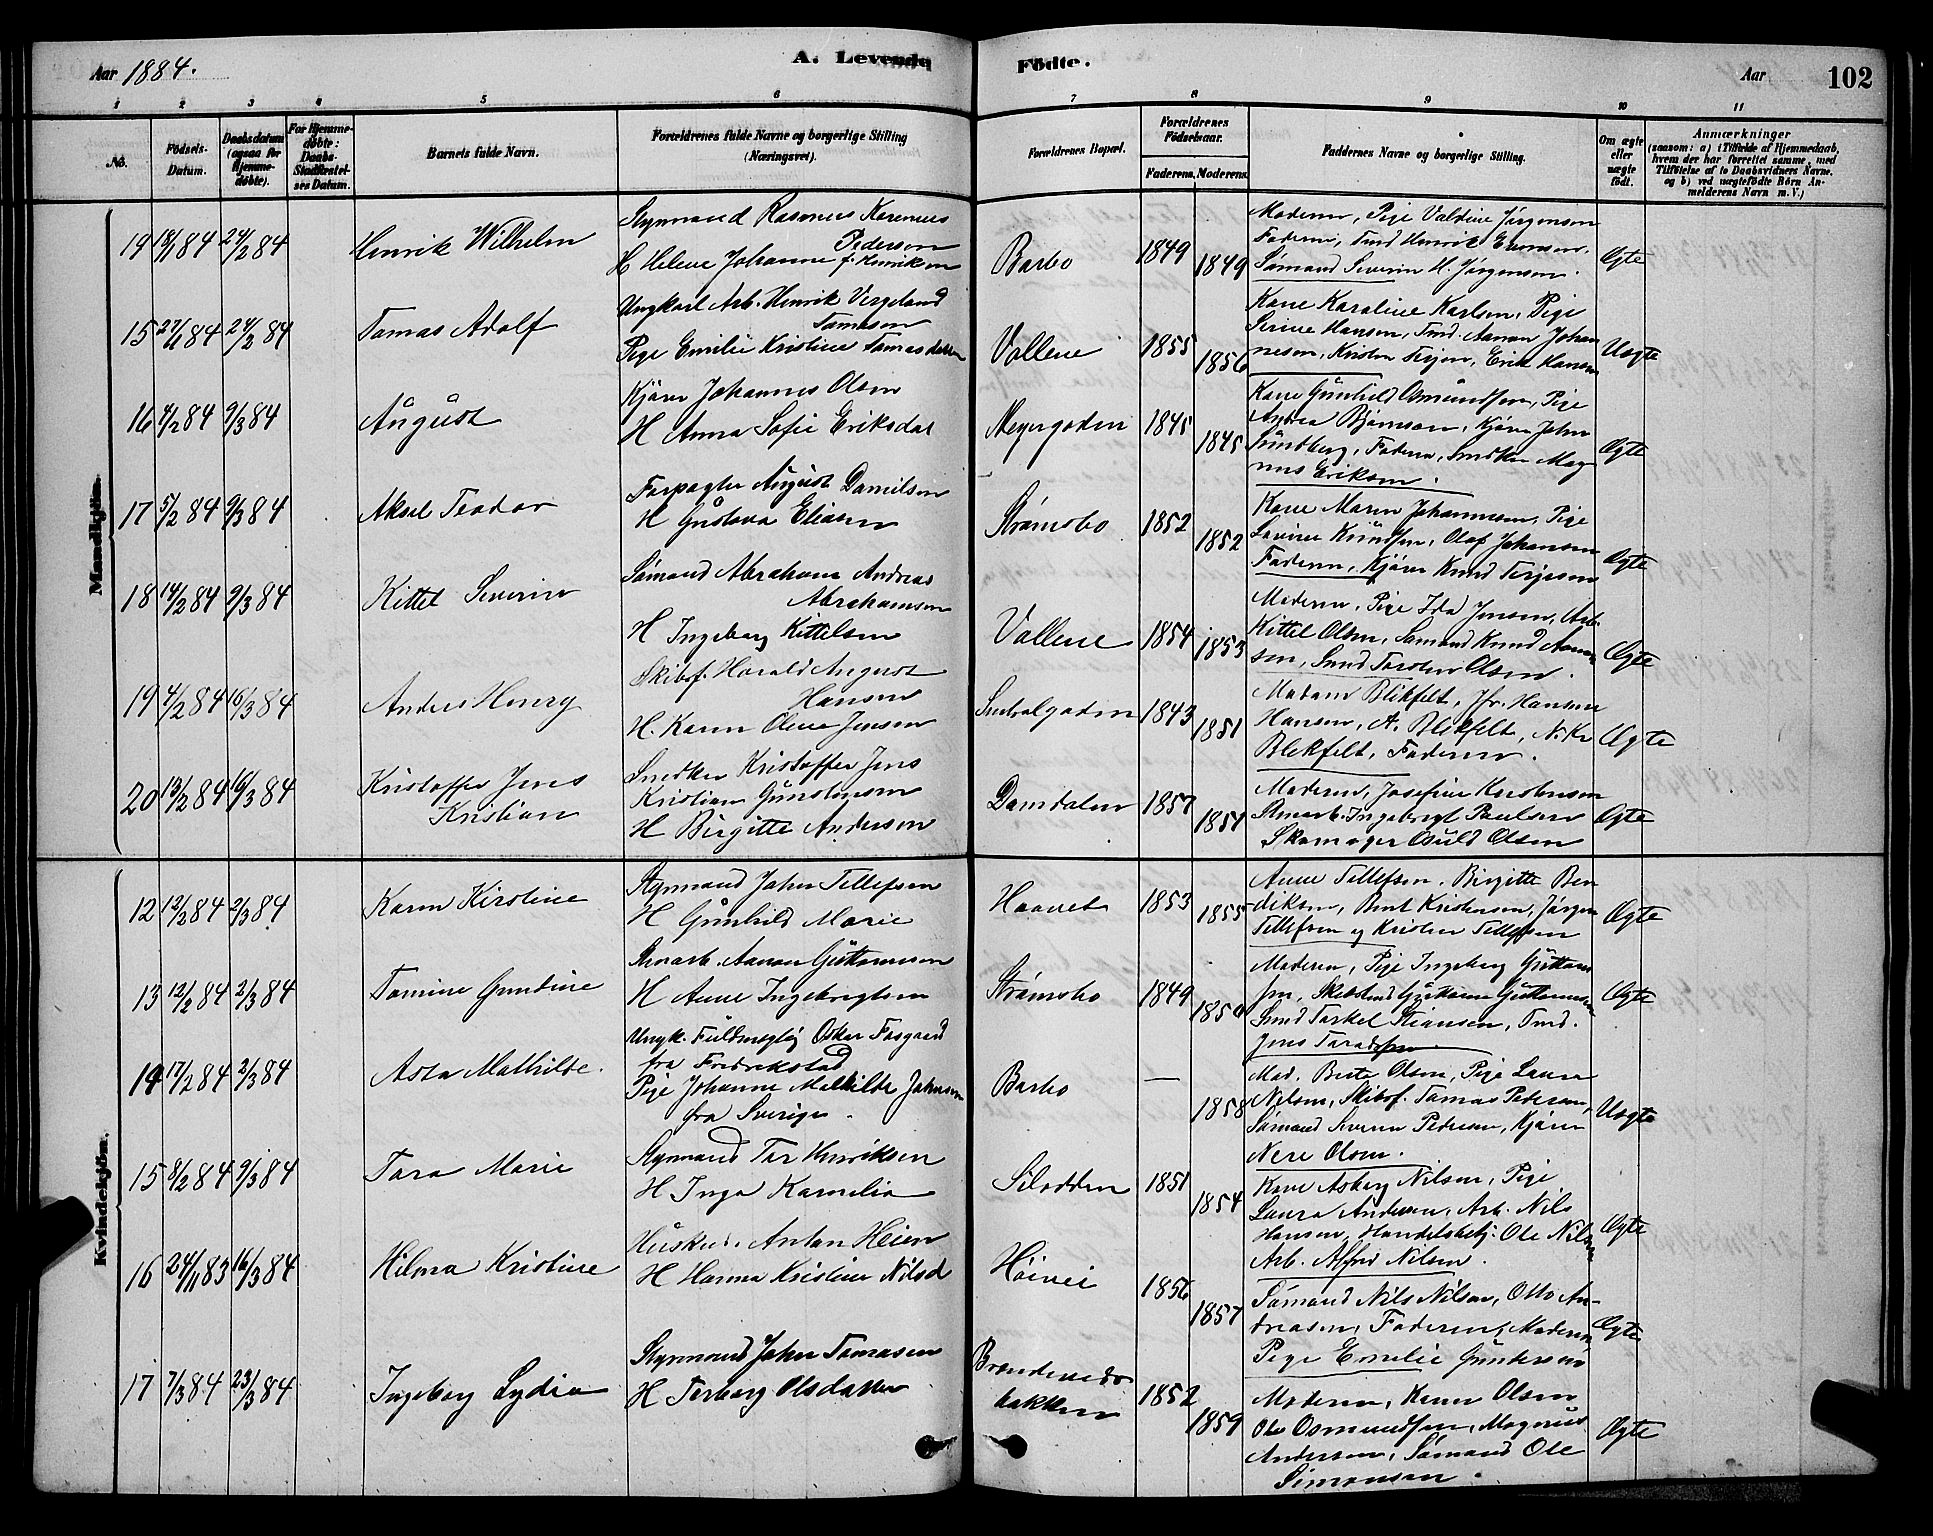 Aar 1884.
A. Levende Födte.
Aar
102
1 2 3 4 5 6 7 8 9 10 11
No.
Födsels-Datum.
Daabsdatum (ogsaa for Hjemme-døbte).
For Hjemme-døbte: Daabs-Stadfæstel-ses Datum.
Barnets fulde Navn.
Forældrenes fulde Navne og borgerlige Stilling (Næringsvei).
Forældrenes Bopæl.
Forældrenes Födselsaar.
Faderens. Moderens.
Faddernes Navne og borgerlige Stilling.
Om ægte eller uægte født.
Anmærkninger
(saasom: a) i Tilfælde af Hjemmedaab, hvem der har forrettet samme, med Tilföielse af to Daabsvidners Navne, og b) ved uægtefödte Börn An-melderens Navn m. V.)
Mandkjön.
19 18/1 84 24/2 84 Henrik Wilhelm
Styrmand Rasmus Karenius Pedersen
H Helene Johanne f. Henriksen
Barbo 1849 1849
Moderen, Pige Valdine Jørgensen
Faderen, Tmd Henrik Evensen,
Sømand Severin H. Jørgensen.
Ægte
15 27/1 84 24/2 84 Tomas Adolf
Ungkarl Arb. Henrik Vergeland Tomasen
Pige Emilie Kristine Tomasdatter
Vollene 1855 1856
Kone Karoline Karlsen, Pige
Serine Hansen, Tmd. Aanon Johan
nesen, Kristen Terjesen, Erik Hansen
Uægte
16 4/2 84 9/3 84 August
Kjører Johannes Olsen
H Anna Sofie Eriksdat
Meyergaden 1845 1845
Kone Gunhild Osmundsen, Pige
Andrea Bjørnsen, Kjører John
Sundberg, Faderen, Snedker Mag
nus Eriksen.
Ægte
17 5/2 84 9/3 84 Aksel Teodor
Forpagter August Danielsen
H Gustava Eliasen
Strømsbo 1852 1852
Kone Maren Johannesen, Pige
Lovine Knudsen, Olaf Johansen
Faderen, Kjører Knud Terjesen
Ægte
18 14/2 84 9/3 84 Kittel Severin
Sömand Abraham Andreas Abrahamsen
H Ingeborg Kittelsen
Vollene 1854 1853
Moderen, Pige Ida Jensen, Arb.
Kittel Olsen, Sømand Knud Aanon
sen, Smed Torsten Olsen.
Ægte
19 4/2 84 16/3 84 Anders Henry
Skibsf. Harald August Hansen
H. Karen Oline Jensen
Sentralgaden 1843 1851
Madam Blikfelt, Jfr. Hansen
Hansen, A. Blikfelt, N. Kr
Blekfelt, Faderen.
Ægte
20 13/2 84 16/3 84 Kristoffer Jens Kristian
Snedker Kristoffer Jens
Kristian Gunstensen
H Birgitte Andersen
Damdalen 1857 1857
Moderen, Josefine Kristensen
Stenarb. Ingebrigt Paulsen
Skomager Osuld Olsen
Ægte
Kvindekjön.
12 12/2 84 2/3 84 Karen Kirstine
Styrmand John Tellefsen
H Gunhild Marie
Haavet 1853 1855
Anne Tellefsen, Birgitte Ben
diksen, Bent Kristensen, Jörgen
Tellefsen og Kristen Tellefsen
Ægte
13 12/2 84 2/3 84 Tomine Gundine
Stenarb. Aanon Guttormsen
H Anne Ingebrigtsen
Strømsbo 1849 1850
Moderen, Pige Ingeborg Guttorm
sen, Skibstmd Guttorm Guttormsen
Smed Torkel Steansen, Tmd.
Jens Taraldsen
Ægte
14 17/2 84 2/3 84 Asta Mathilde.
Ungk. Fuldmægtig Oskar Fosgaard
fra Fredrikstad
Pige Johanne Mathilde Johnsen
fra Sverige.
Barbo — 1858
Mad. Berte Olsen, Pige Laura
Nilsen, Skibsf. Tomas Pedersen,
Sömand Severin Pedersen, Kjører
Nere Olsen.
Uægte
15 8/2 84 9/3 84 Tora Marie
Styrmand Tor Henriksen
H Inga Kornelia
Silodden 1851 1854
Kone Asberg Nilsen, Pige
Laura Andersen, Arb. Nils
Hansen, Handelsbetj. Ole Nilsen
Arb. Alfred Nilsen.
Ægte
16 24/11 83 16/3 84 Hilma Kristine
Anton Heien
H Hanna Kristine Nilsd
Höivei 1856 1857
Sömand Nils Nilsen, Otto An-
dreasen, Faderen, Moderen
Pige Emilie Gundersen
Ægte
17 7/3 84 23/3 84 Ingeborg Lydia
Styrmand John Tomasen
H Torborg Olsdatter
Brændevins
bakken 1852 1859
Moderen, Karen Olsen
Ole Osmundsen, Magnus
Andersen, Sömand Ole
Simonsen.
Ægte